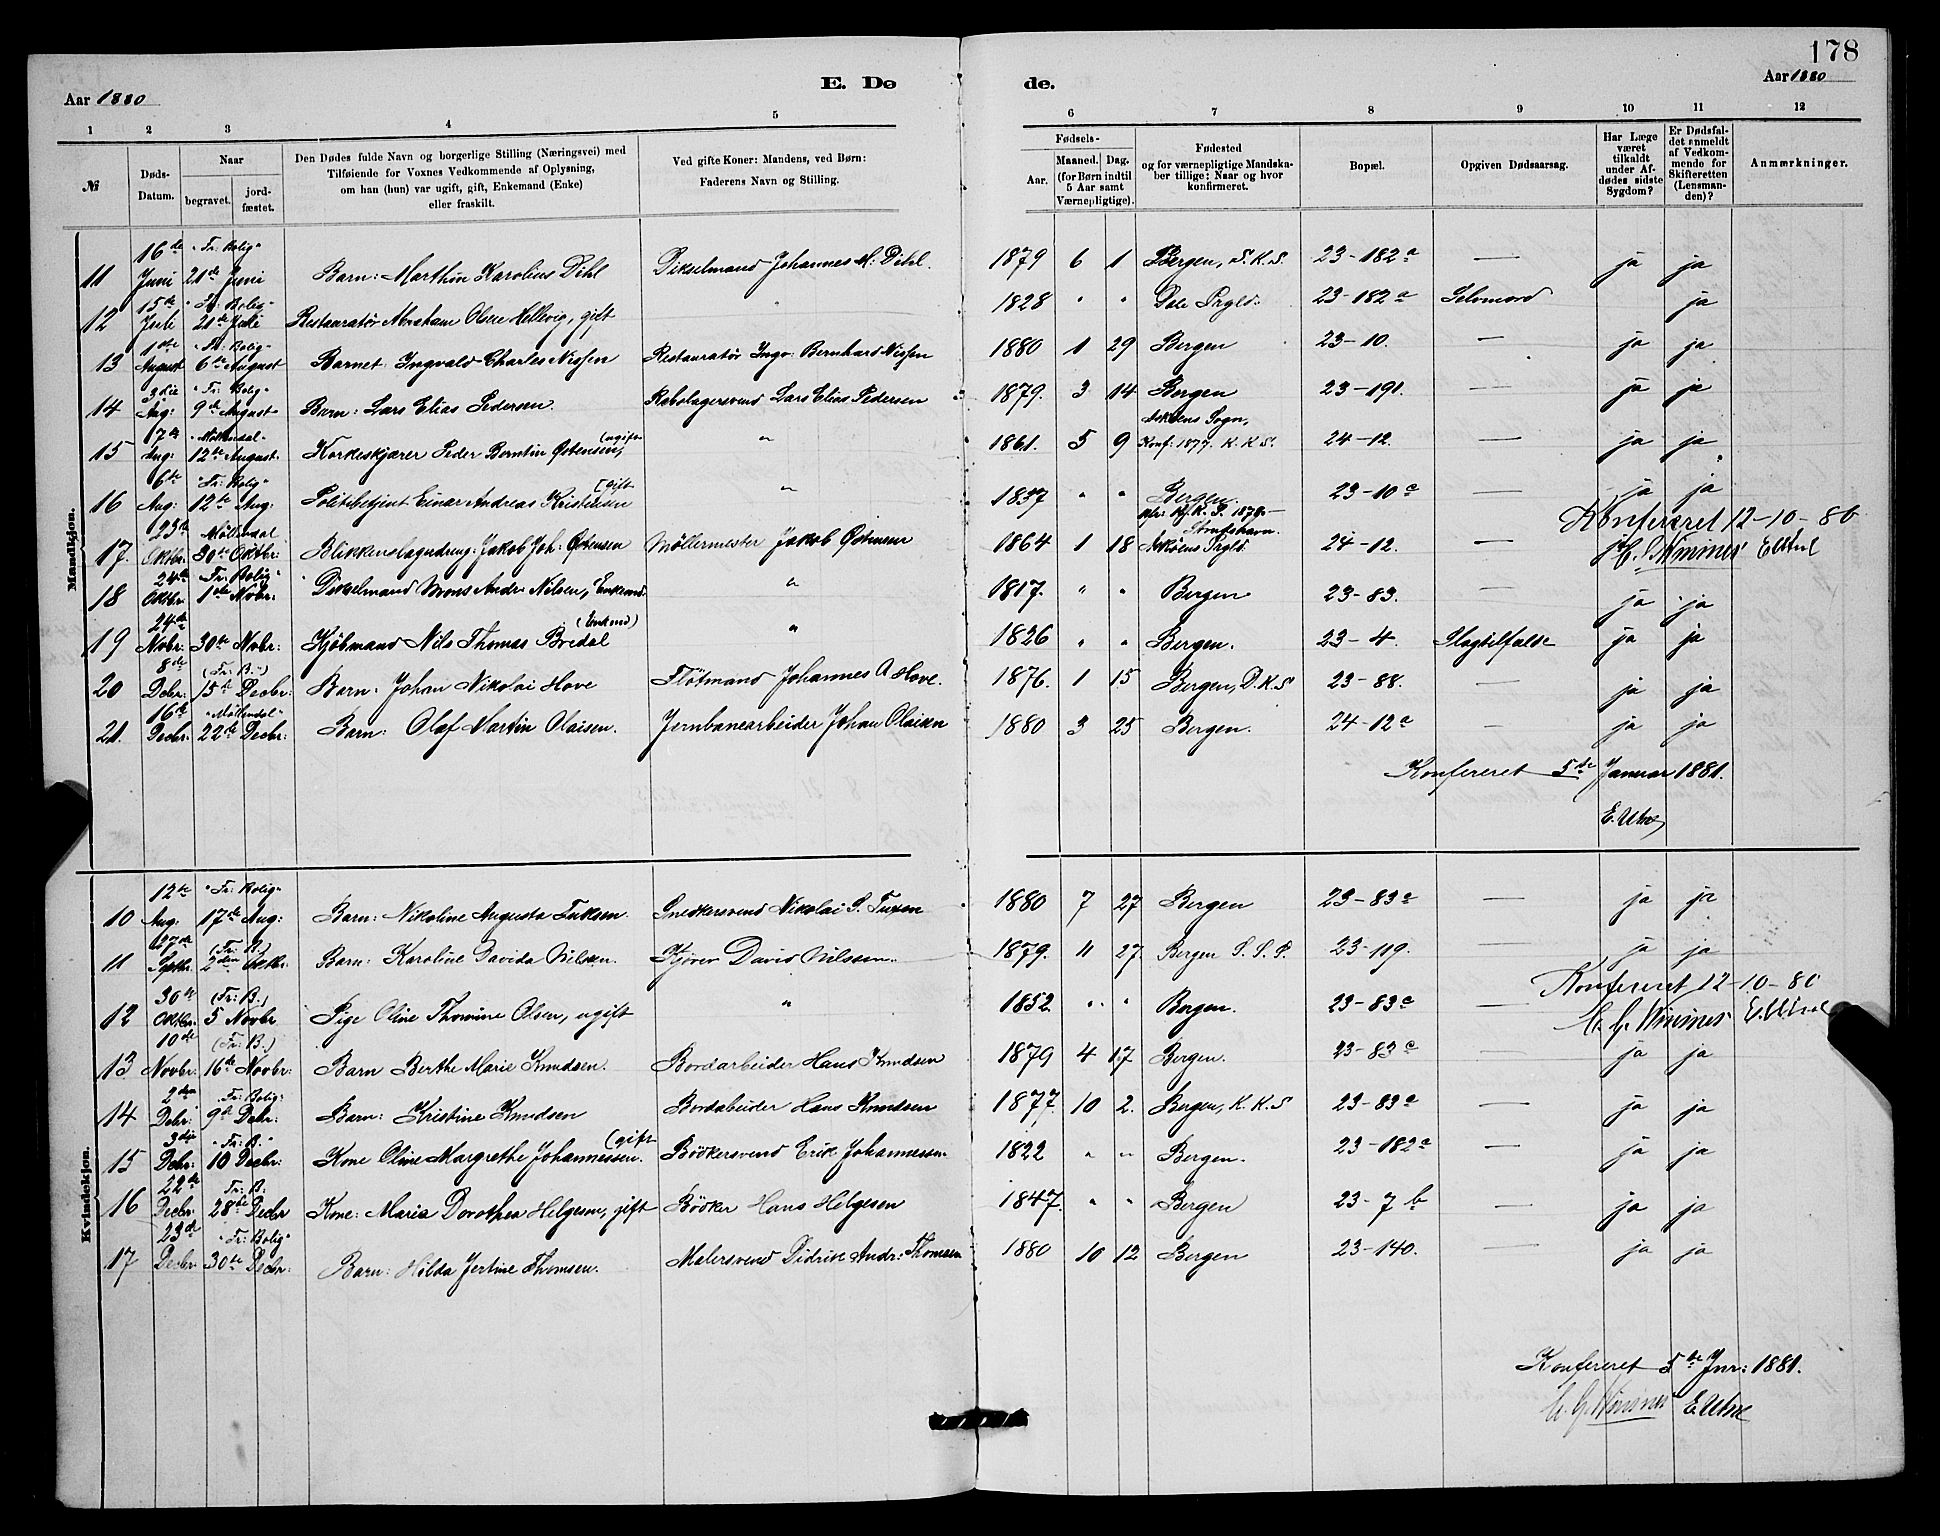 178
Aar 1880
E. Dø
de.
Aar 1880
1 2 3 4 5 6 7 8 9 10 11 12
№
Døds-Datum.
Naar
begravet.
jord-fæstet.
Den Dødes fulde Navn og borgerlige Stilling (Næringsvei) med
Tilføiende for Voxnes Vedkommende af Oplysning,
om han (hun) var ugift, gift, Enkemand (Enke)
eller fraskilt.
Ved gifte Koner: Mandens, ved Børn:
Faderens Navn og Stilling.
Fødsels-
Aar.
Maaned. Dag.
(for Børn indtil
5 Aar samt
Værnepligtige).
Fødested
og for værnepligtige Mandska-
ber tillige: Naar og hvor
konfirmeret.
Bopæl.
Opgiven Dødsaarsag.
Har Læge
været
tilkaldt
under Af-
dødes sidste
Sygdom?
Er Dødsfal-
det anmeldt
af Vedkom-
mende for
Skifteretten
(Lensman-
den)?
Anmærkninger.
Mandkjøn.
16de "Fr: Bolig"
11 Juni 21de Juni Barn: Marthin Karolius Dihl Johannes M: Dihl. 1879 6 1 Bergen, 23-182a — ja ja
15de "Fr: Bolig"
12 Juli 21de Juli Restauratør Abraham Olsen Hellevig, gift " 1828 " " Dale Prgld. 23-182a Selvmord ja
1ste "Fr: Bolig"
13 August 6te August Barnet Ingvald Charles Nissen Restauratør Ingv: Bernhard Nissen 1880 1 29 Bergen 23-10. — ja ja
3die "Fr: Bolig"
14 Aug: 9de August Barn: Lars Elias Pedersen. Lars Elias Pedersen 1879. 3 14 Bergen 23-191. — ja ja
7de "Møllendal" (ugift Askøens Sogn,
15 Aug: 12te August. Korkeskjærer Peder Berntin Østensen, " 1861. 5 9 Konf: 1877. K. K. S. 24-12. — ja ja
6te "Fr: Bolig" (gift
16 Aug: 12te Aug: Politibetjent Einar Andreas Kristensen " 1837 " " Bergen. 23-10a — ja ja
23de Møllendal Strudshavn. Konfereret 12-10-80
17. Oktbr: 30te Oktbr: Blikkenslagerdreng: Jakob Joh. Østensen Møllermester Jakob Østensen 1864 1 18 Askøens Prgld. 24-12. — Winsnes E Utne
24de "Fr: Bolig"
18 Oktbr: 1ste Novbr: Mons Andr. Nilsen, Enkemd. " 1817. " " Bergen 23-83. — ja ja
24de (Enkemd)
19 Novbr: 30te Novbr: Kjøbmand Nils Thomas Bredal " 1826 " " Bergen. 23-4. Slagtilfælde ja ja
8de (Fr: B.)
20 Debr: 15de Decbr: Barn: Johan Nikolai Hove Fløtmand Johannes A Hove. 1876. 1 15 Bergen, D.K.S 23-88. — ja ja
16de "Møllendal"
21. Decbr: 22de Decbr: Barn: Olaf Martin Olaisen. Jernbanearbeider Johan Olaisen 1880 3 25 Bergen. 24-12a — ja ja
Konfereret 5te Januar 1881.
E. Utne
Kvindekjøn.
12te "Fr: Bolig"
10 Aug: 17de Aug: Barn: Nikoline Augusta Tuksen. Snedkersvend Nikolai S. Tuxen 1880 7 27 Bergen 23-83a — ja ja
27de (Fr: B.)
11 Septbr. 2den Oktbr: Barn: Karoline Davida Nilsen. David Nilssen. 1879. 11 27 Bergen 23-119. — ja ja
Konfereret 12-10-80
30te (Fr: B.)
12 Oktbr: 5 Novbr Pige Oline Thomine Olsen, ugift " 1852. " " Bergen. 23-83a — Winsnes E. Utne
10de (Fr: B.)
13 Novbr: 16de Novbr: Barn Berthe Marie Knudsen. Bordarbeider Hans Knudsen 1879 4 17 Bergen. 23-83a — ja ja
2den "Fr: Bolig"
14 Debr: 9de Debr: Barn: Kristine Knudsen Bordabeider Hans Knudsen 1877. 10 2. Bergen, K.K.S 23-83a — ja ja
3die "Fr: B." (gift
15 Debr: 10 Decbr: Kone Oline Margrethe Johannessen. Bødkersvend Erik Johannessen 1822 " " Bergen. 23-182a — ja ja
22de Fr: B:
16 Decbr 28de Decbr Kone: Maria Dorothea Helgesen, gift Bødker Hans Helgesen 1847. " " Bergen 23-7 b — ja ja
23de "Fr: Bolig"
17 Decbr 30te Decbr: Barn: Hilda Jertine Thomsen. Malersvend Didrik Andr: Thomsen 1880 10 12 Bergen 23-140. — ja ja
Konfereret 5te Jnr: 1881.
Winsnes E Utne